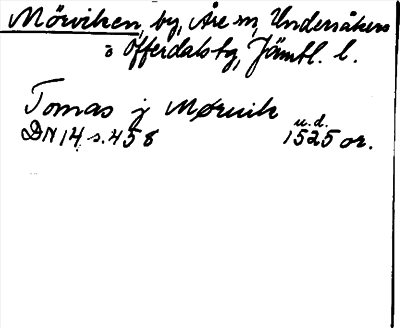 Mörviken, by, Åre sn, Undersåkers
o Offerdals tg, Jämtl. l.
Tomas j Mørvik
u.d.
DN 14 s. 458 1525 or.